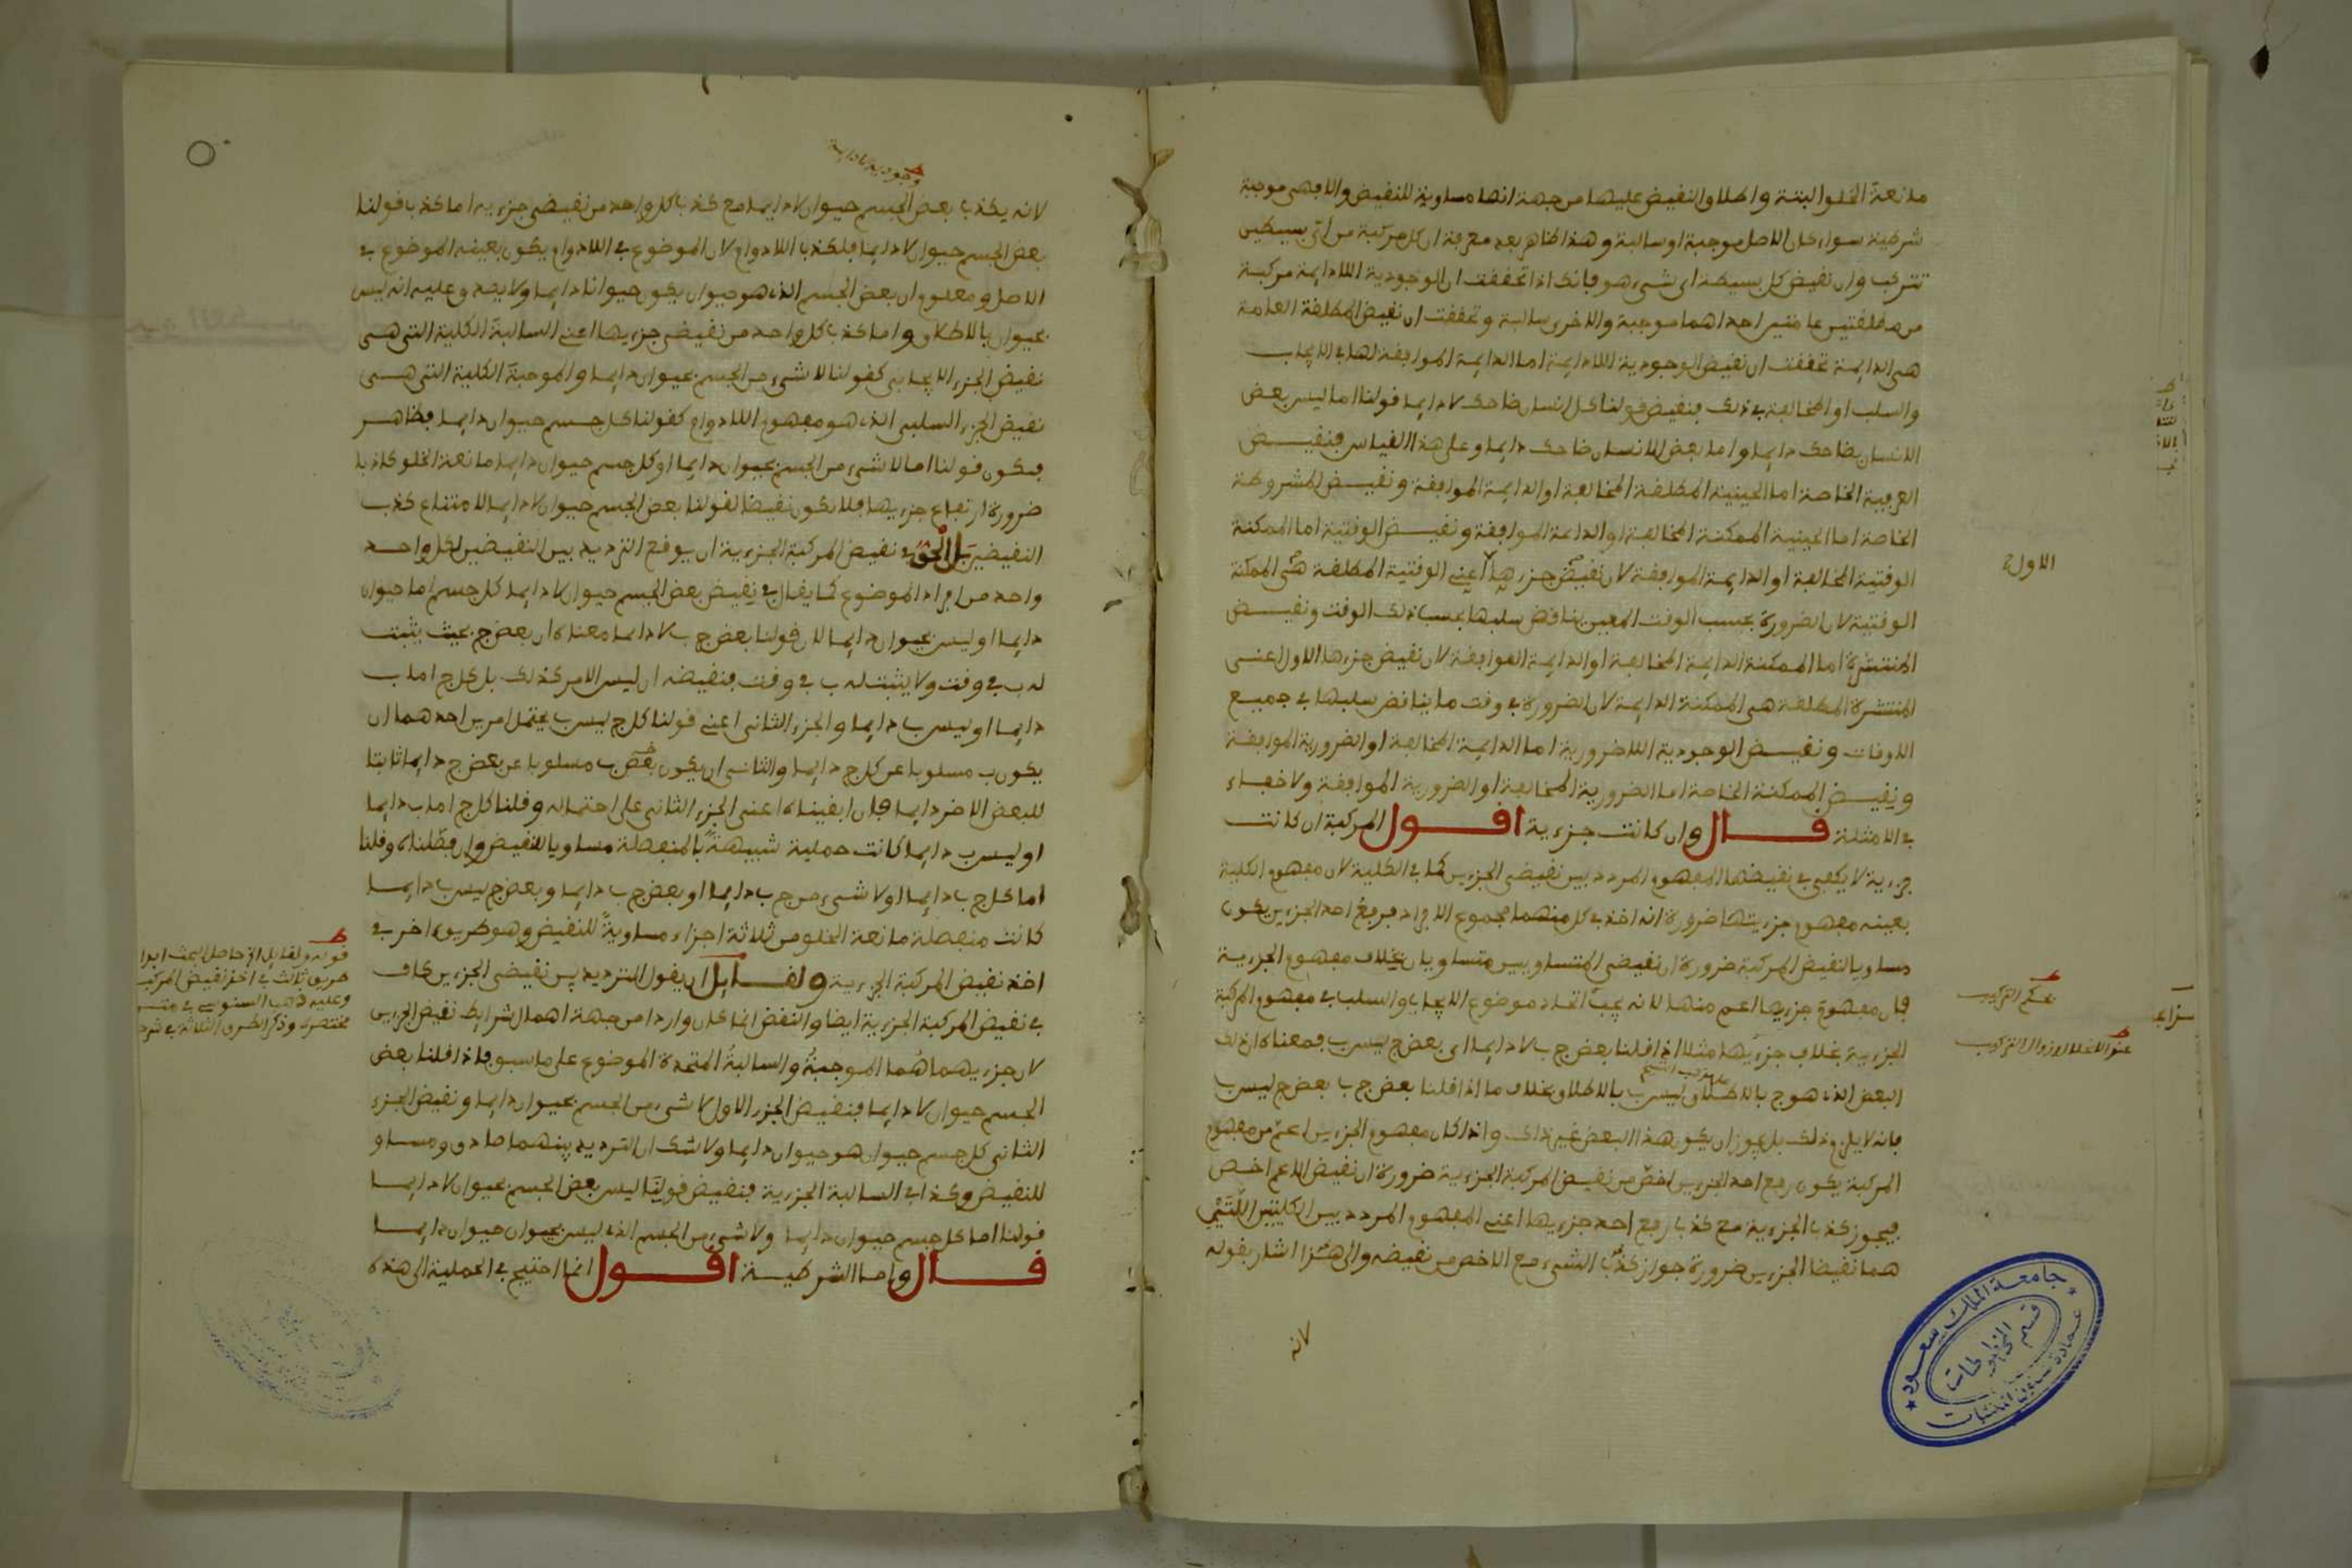 مانعة الخلو البتة واطلاق النقيض عليها من جهة انها مساوية للنقيض والا فهي موجبة
شرطية سواء كان الاصل موجبة او سالبة وهذا ظاهر بعد معرفة ان كل مركبة من اي بسيطين
تتركب وان نقيض كل بسيطة اي شيء هو فانك اذا تحققت ان الوجودية اللادايمة مركبة
من مطلقتين عامتين احداهما موجبة والاخرى سالبة وتحققت ان نقيض المطلقة العامة
هي الدايمة تحققت ان نقيض الوجودية اللادايمة اما الدايمة الموافقة لها في الايجاب
والسلب او المخالفة في ذلك فنقيض قولنا كل انسان ضاحك لا دايما قولنا اما ليس بعض
الانسان بضاحك دايما واما بعض الانسان ضاحك دايما وعلى هذا القياس فنقيض
العرفية الخاصة اما الحينية المطلقة المخالفة او الدايمة الموافقة ونقيض المشروطة
الخاصة اما الحينية الممكنة المخالفة او الدايمة الموافقة ونقيض الوقتية اما الممكنة
الوقتية المخالفة او الدايمة الموافقة لان نقيض جزءها اعني الوقتية المطلقة هي الممكنة
الاول
الوقتية لان الضرورة بحسب الوقت المعين يناقض سلبها بحسب ذلك الوقت ونقيض
المنتشرة اما الممكنة الدايمة المخالفة او الدايمة الموافقة لان نقيض جزءها الاول اعني
المنتشرة المطلقة هي الممكنة الدايمة لان الضرورة في وقت ما يناقض سلبها في جميع
الاوقات ونقيض الوجودية اللاضرورية اما الدايمة المخالفة او الضرورية الموافقة
ونقيض الممكنة الخاصة اما الضرورية المخالفة او الضرورية الموافقة ولا خفاء
في الامثلة قال وان كانت جزءية اقول المركبة ان كانت
جزءية لا يكفي في نقيضها المفهوم المردد بين نقيضي الجزءين كما في الكلية لان مفهوم الكلية
بعينه مفهوم جزءيتها ضرورة انه اخذ في كل منهما مجموع الافراد فرفع احد الجزءين يكون
مساويا لنقيض المركبة ضرورة ان نقيضي المتساويين متساويان بخلاف مفهوم الجزءية
فان مفهوم جزءيها اعم منها لانه يجب اتحاد موضوع الايجاب والسلب في مفهوم المركبة
بحكم التركيب
الجزءية بخلاف جزءيها مثلا اذا قلنا بعض ج ب لا دايما اي بعض ج ليس ب فمعناه ان ذلك
البعض الذي هو ج ب بالاطلاق ليس ب بالاطلاق بخلاف ما اذا قلنا بعض ج ب بعض ج ليس ب
فانه لا يلزم ذلك بل يجوز ان يكون هذا البعض غير ذاك واذا كان مفهوم الجزءين اعم من مفهوم
المركبة يكون رفع احد الجزءين اخص من نقيض المركبة الجزءية ضرورة ان نقيض الاعم اخص
فيجوز كذب الجزءية مع كذب رفع احد جزءيها اعني المفهوم المردد بين الكليتين اللتين
هما نقيضا الجزءين ضرورة جواز كذب الشيء مع الاخص من نقيضه والى هذا اشار بقوله
لانه
جامعة الملك سعود
قسم المخطوطات
عمادة شؤون المكتبات
لانه يكذب بعض الجسم حيوان لا دايما مع كذب كل واحد من نقيضي جزءيه اما كذب قولنا
بعض الجسم حيوان لا دايما فلكذب اللادوام لان الموضوع في اللادوام يكون بعينه الموضوع في
الاصل ومعلوم ان بعض الجسم الذي هو حيوان يكون حيوانا دايما ولا يصدق عليه انه ليس
بحيوان بالاطلاق واما كذب كل واحد من نقيضي جزءيها اعني السالبة الكلية التي هي
نقيض الجزء الايجابي كقولنا لا شيء من الجسم بحيوان دايما والموجبة الكلية التي هي
نقيض الجزء السلبي الذي هو مفهوم اللادوام كقولنا كل جسم حيوان دايما فظاهر
فيكون قولنا اما لا شيء من الجسم بحيوان دايما او كل جسم حيوان دايما مانعة الخلو كاذبا
ضرورة ارتفاع جزءيها فلا يكون نقيضا لقولنا بعض الجسم حيوان لا دايما لامتناع كذب
النقيضين بل الحق في نقيض المركبة الجزءية ان يوقع الترديد بين النقيضين لكل واحد
واحد من افراد الموضوع كما يقال في نقيض بعض الجسم حيوان لا دايما كل جسم اما حيوان
دايما او ليس بحيوان دايما لان قولنا بعض ج ب لا دايما معناه ان بعض ج بحيث يثبت
له ب في وقت ولا يثبت له ب في وقت فنقيضه ان ليس الامر كذلك بل كل ج اما ب
دايما او ليس ب دايما والجزء الثاني اعني قولنا كل ج ليس ب يحتمل امرين احدهما ان
يكون ب مسلوبا عن كل ج دايما والثاني ان يكون ب مسلوبا عن بعض ج دايما ثابتا
للبعض الاخر دايما فان ابقيناه اعني الجزء الثاني على احتماله وقلنا كل ج اما ب دايما
او ليس ب دايما كانت حملية شبيهة بالمنفصلة مساويا للنقيض وان فصلناه وقلنا
اما كل ج ب دايما او لا شيء من ج ب دايما او بعض ج ب دايما وبعض ج ليس ب دايما
كانت منفصلة مانعة الخلو من ثلاثة اجزاء مساوية للنقيض وهو طريق اخر في
اخذ نقيض المركبة الجزءية ولقايل ان يقول الترديد بين نقيضي الجزءين كاف
في نقيض المركبة الجزءية ايضا والنقض انما كان واردا من جهة اهمال شرايط نقيض الجزءين
لان جزءيهما هما الموجبة والسالبة المتحدة الموضوع على ما سبق فاذا قلنا بعض
الجسم حيوان لا دايما فنقيض الجزء الاول لا شيء من الجسم بحيوان دايما ونقيض الجزء
الثاني كل جسم حيوان هو حيوان دايما ولا شك ان الترديد بينهما صادق ومساو
للنقيض وكذا في السالبة الجزءية فنقيض قولنا ليس بعض الجسم بحيوان لا دايما
قولنا اما كل جسم حيوان دايما ولا شيء من الجسم الذي ليس بحيوان حيوان دايما
قال واما الشرطية اقول انما احتيج في الحملية الى هذه